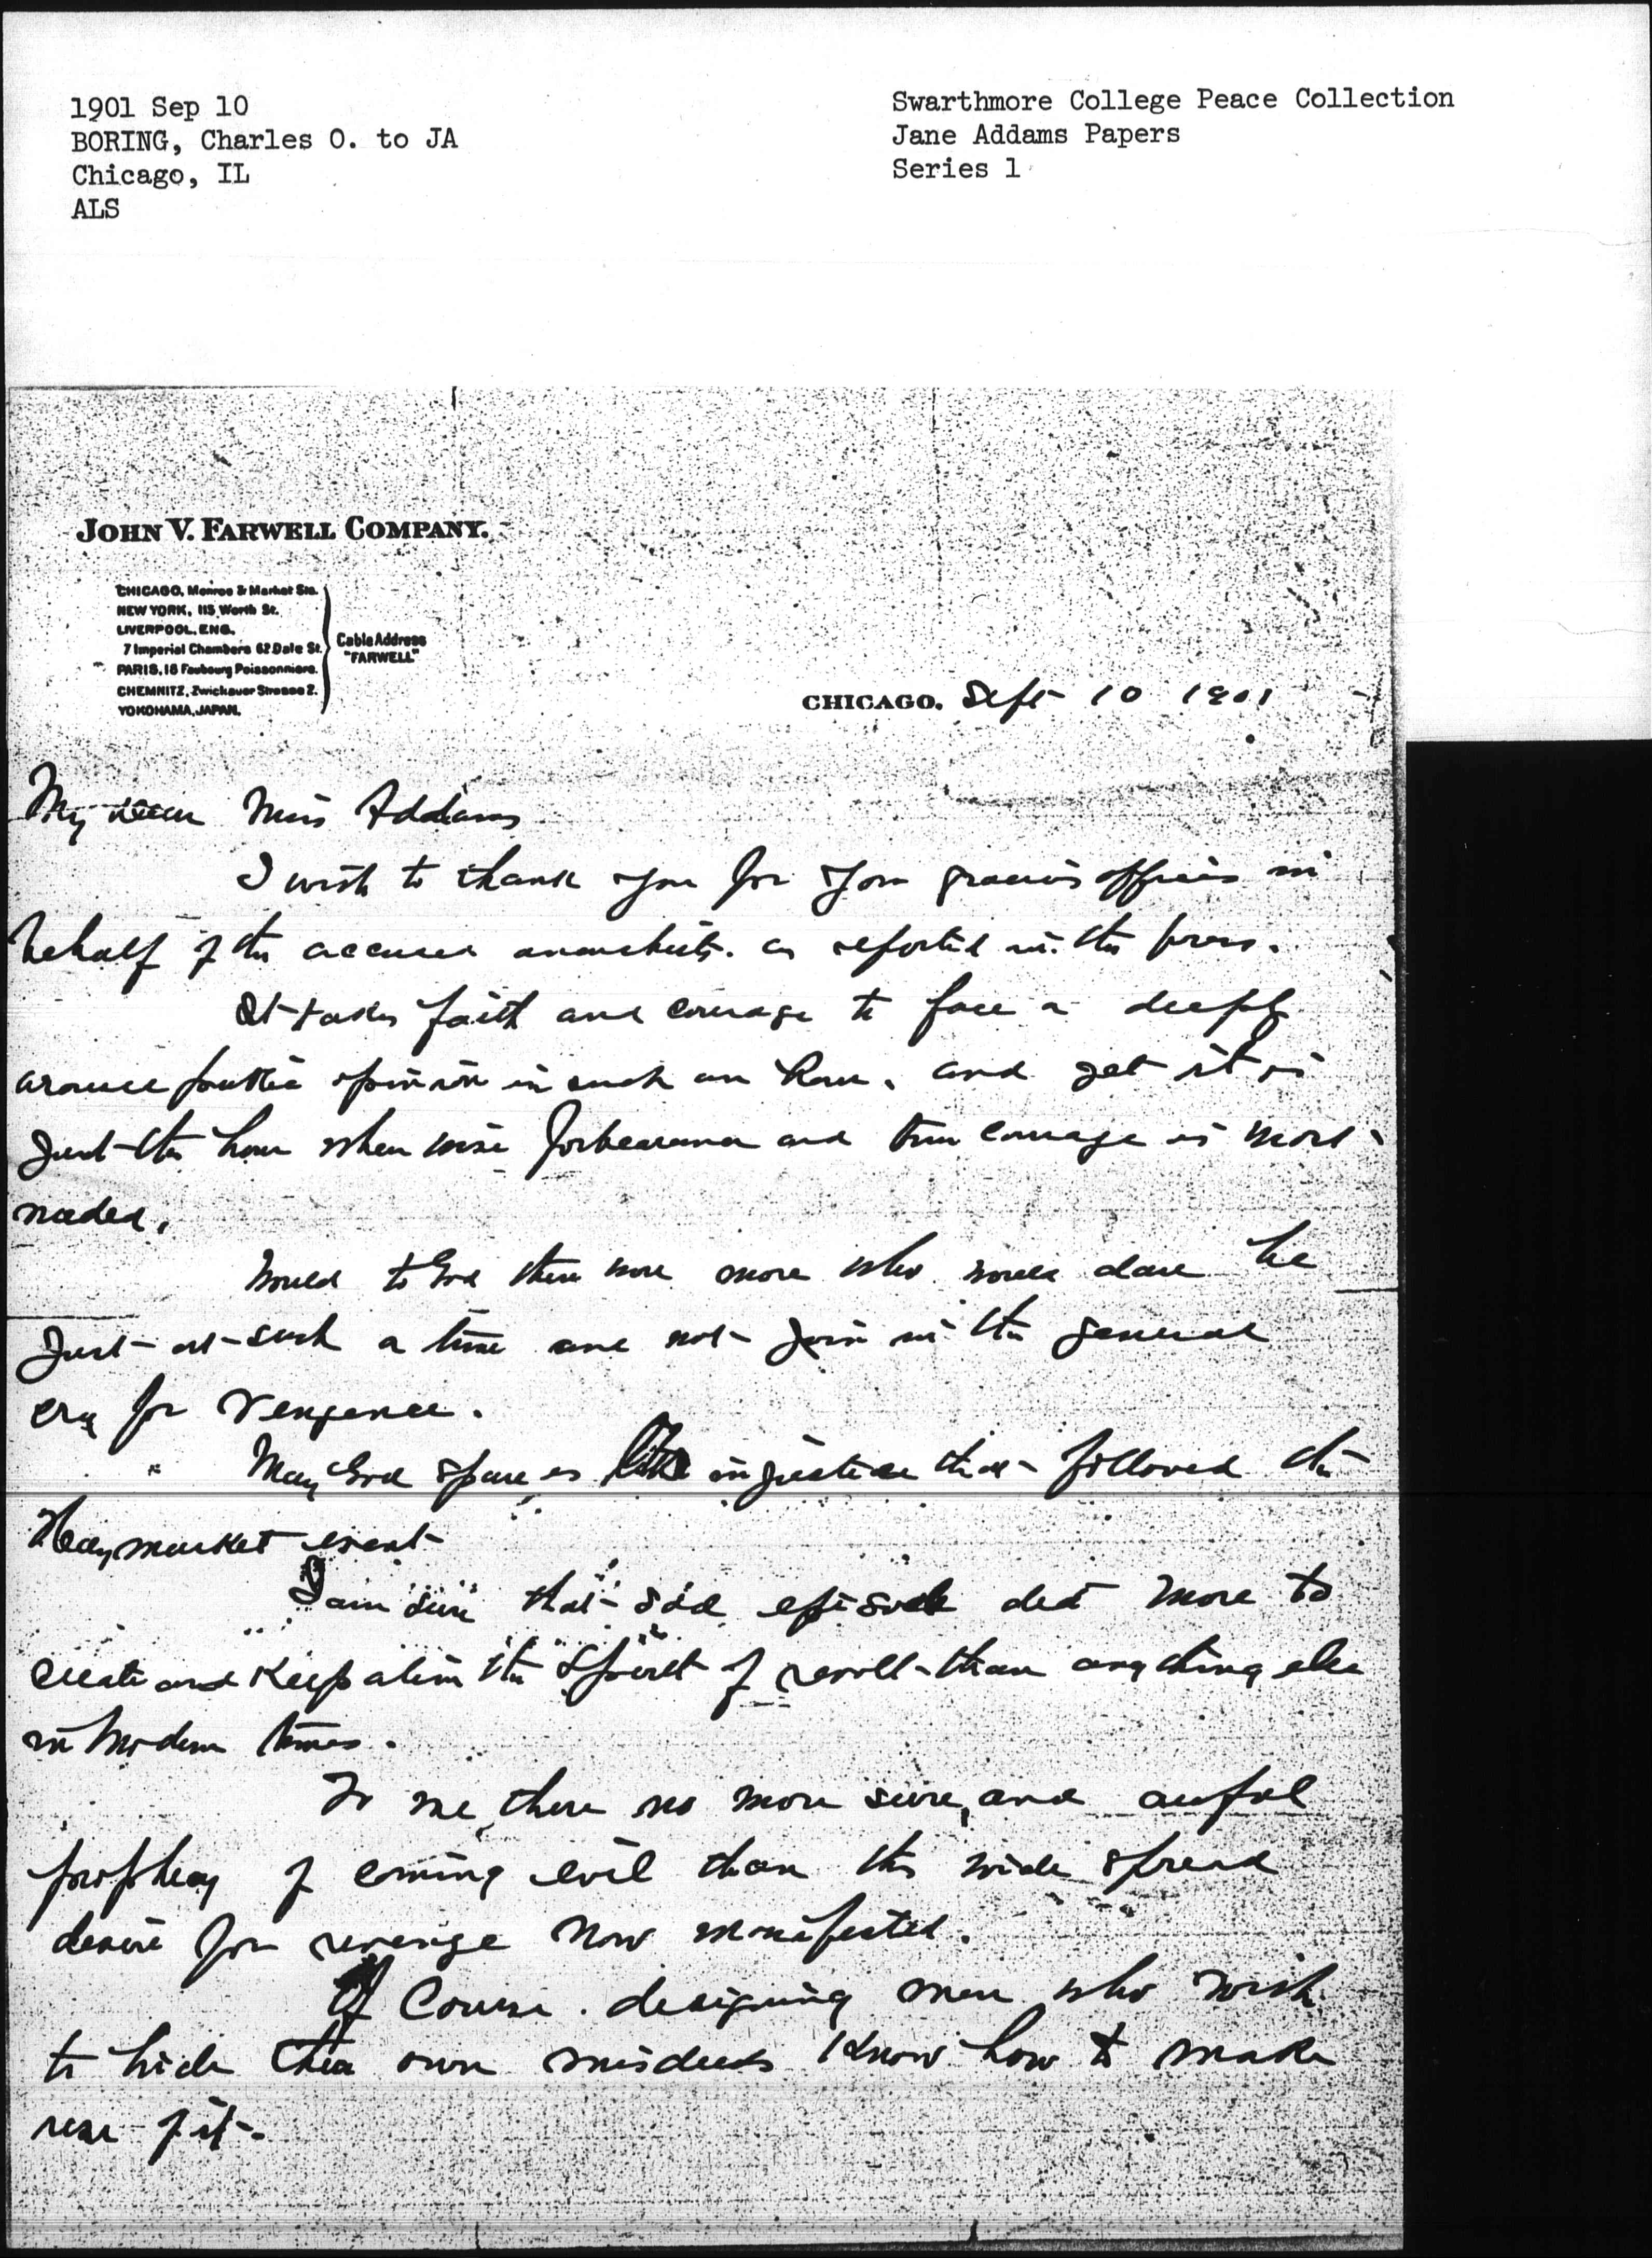 1901 Sep 10
BORING, Charles O. to JA
Chicago, IL
ALS
Swarthmore College Peace Collection
Jane Addams Papers
Series 1
JOHN V. FARWELL COMPANY.
CHICAGO, Monroe & Market Sts.
NEW YORK, 115 Worth St.
LIVERPOOL, ENG.
7 Imperial Chambers 62 Dale St.
PARIS, 18 Faubourg Poissonniere.
CHEMNITZ, Zwickauer Strasse 2.
YOKOHAMA, JAPAN.
Cable Address
"FARWELL"
CHICAGO. Sept 10 1901
My dear Miss Addams
I wish to thank you for your gracious offices in
behalf of the accused anarchists. as reported in the press.
It takes faith and courage to face a deeply
aroused public opinion in such an hour. and yet it is
just the hour when wise forbearance and true courage is most
needed.
Would to God there were more who would dare be
just at such a time and not join in the general
cry for vengence.
May God spare us like injustice that followed the
Haymarket event
I am sure that sad episode did more to
create and keep alive the spirit of revolt than anything else
in modern times.
To me, there no more sure, and awful
prophecy of coming evil than this wide spread
desire for revenge now manifested.
Of course. designing men who wish
to hide their own misdeeds know how to make
use of it.